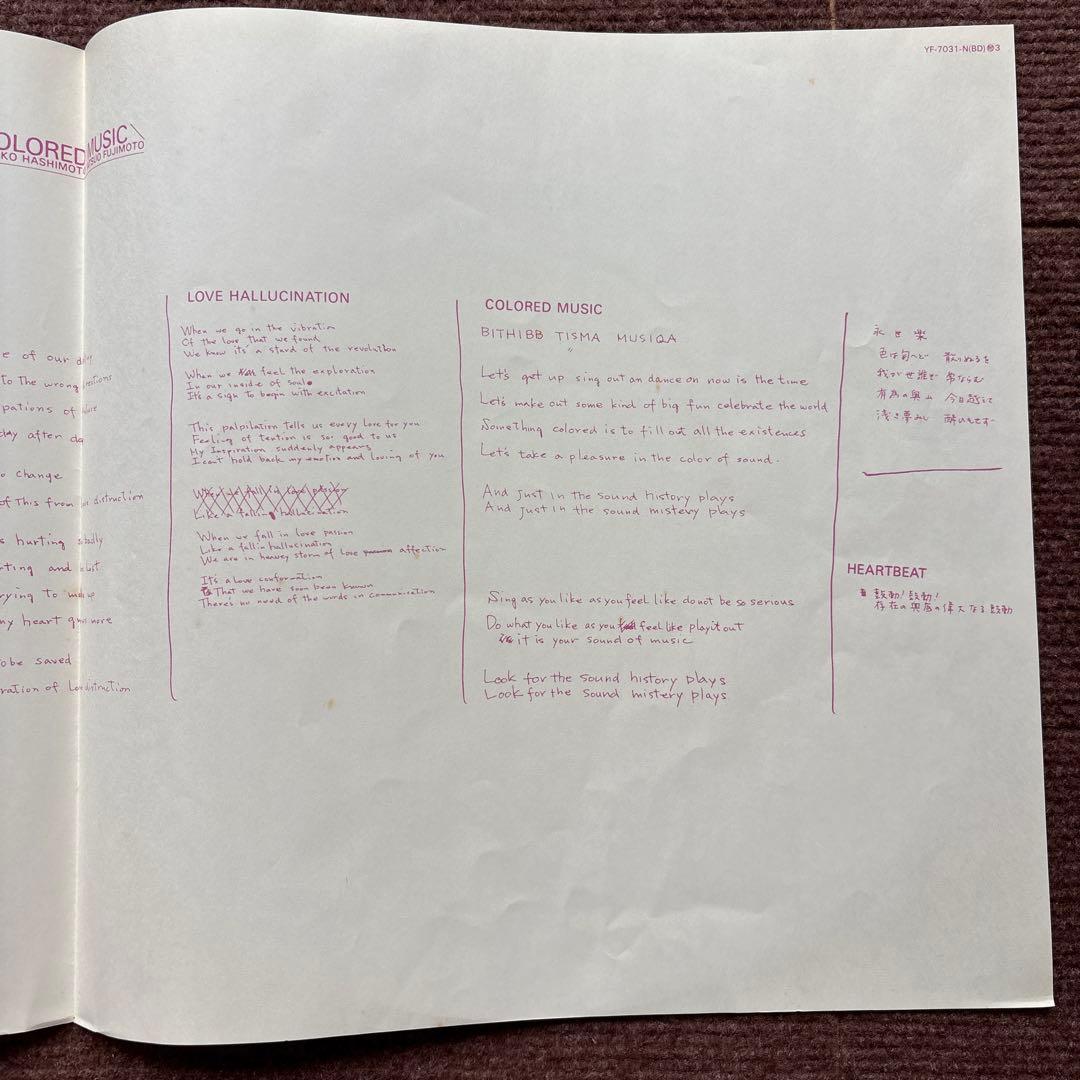 YF-7031-N(BD)㊕3
OLORED MUSIC
KO HASHIMOTO FUJIMOTO
e of our
to The wrong
pations of
day after da
o change
of This from distruction
s hurting badly
ting and
rying to
my heart more
obe saved
ration of Love distruction
LOVE HALLUCINATION
When we go in the vibration
Of the love that we found
We know it's a stard of the revolution
When we feel the exploration
In our inside of soul
It's a sign to begin with excitation
This palpilation tells us every love for you
Feeling of tention is so good to us
My Inspiration suddenly appears
I can't hold back my emotion and loving of you
When we fall in love passion
Like a fallin hallucination
When we fall in love passion
Like a fallin hallucination
We are in heavey storm of love affection
It's a love conformation
That we have soon been known
Theres no need of the words in communication
COLORED MUSIC
BITHIBB TISMA MUSIQA
Let's get up sing out an dance on now is the time
Let's make out some kind of big fun celebrate the world
Something colored is to fill out all the existences
Let's take a pleasure in the color of sound.
And just in the sound history plays
And just in the sound mistery plays
Sing as you like as you feel like do not be so serious
Do what you like as you feel like play it out
it is your sound of music
Look for the sound history plays
Look for the sound mistery plays
永世楽
色は匂へど 散りぬるを
我が世誰ぞ 常ならむ
有為の奥山 今日越えて
浅き夢みし 酔ひもせず
HEARTBEAT
鼓動!鼓動!
存在の奥底の偉大なる鼓動